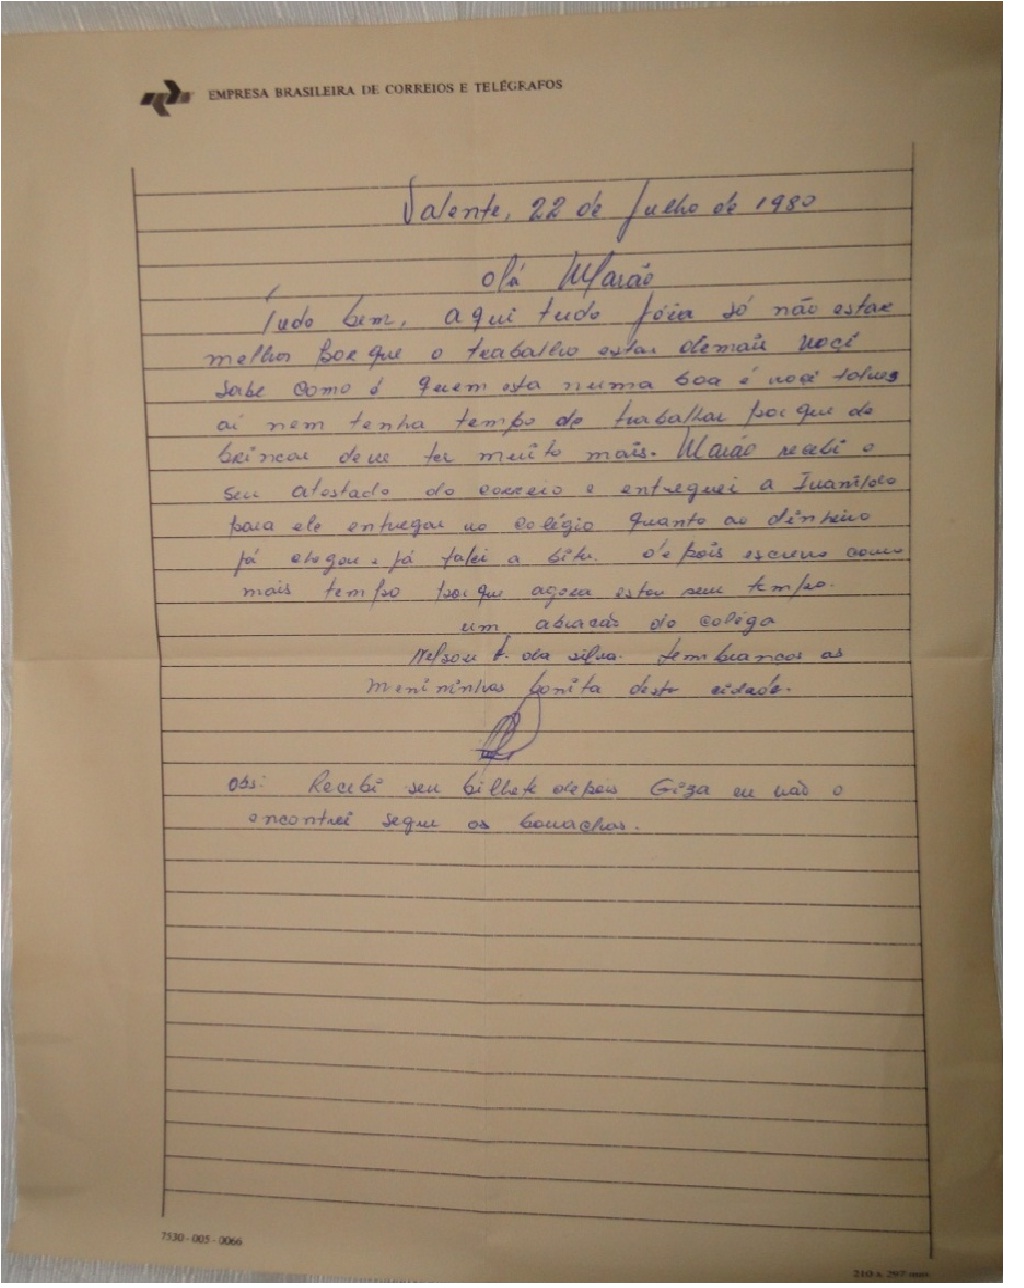 EMPRESA BRASILEIRA DE CORREIOS E TELÉGRAFOS
Valente, 22 de Julho de 1980
olá Marão
Tudo bem, aqui tudo jóia só não estar
melhor porque o trabalho estar demais você
sabe como é quem esta numa boa é você talves
aí nem tenha tempo de trabalhar porque de
brincar deve ter muito mais. Marão recebi o
seu atestado do correio e entreguei a
para ele entregar no colégio quanto ao dinheiro
já chegou e já falei a depois escrevo com
mais tempo porque agora estou sem tempo.
um do coléga
Nelson F. da silva. lembranças as
menininhas bonita desta cidade.
obs: Recebi seu bilhete depois Giza eu não o
encontrei segue as borrachas.
7530 - 005 - 0066
210 x 297 mm